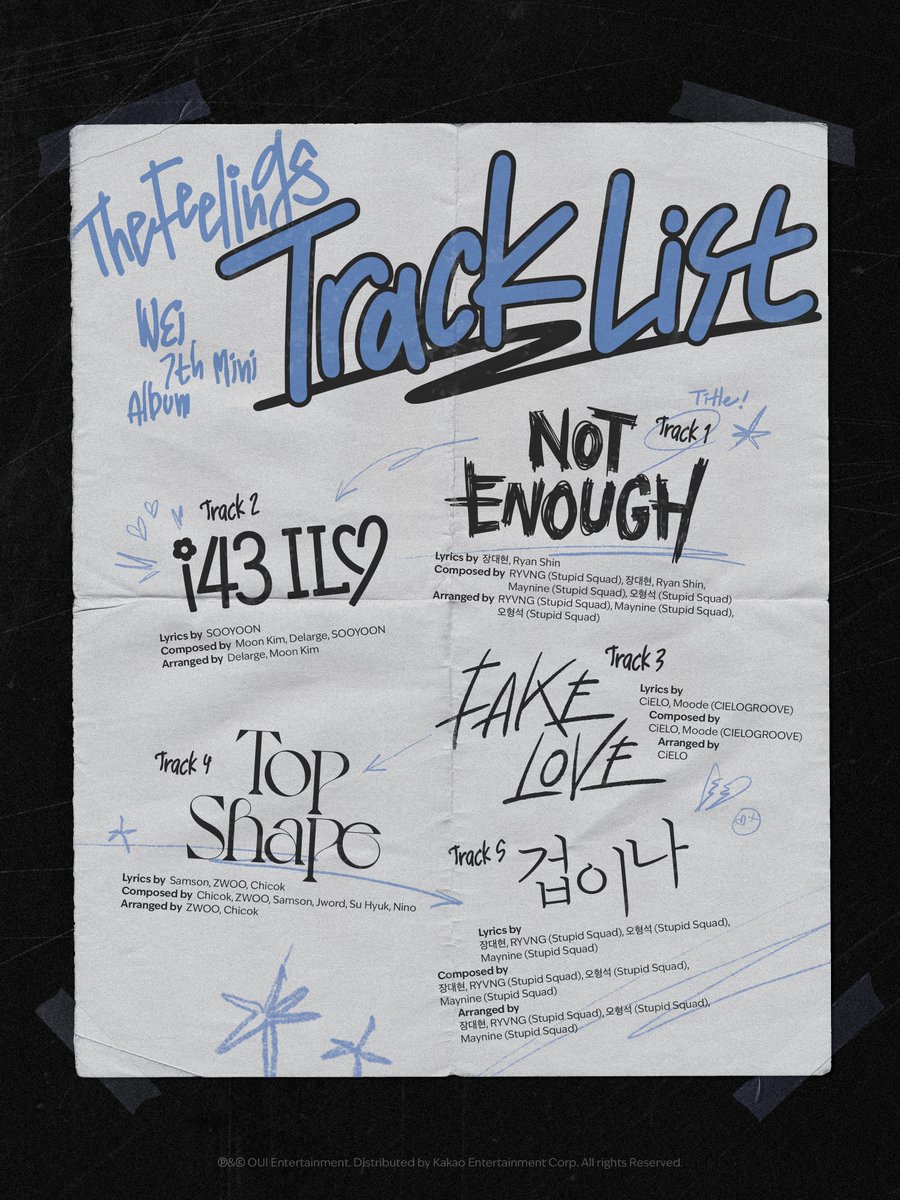 The Feelings
Track List
WEi
7th Mini
Album
Title!
Track 1
NOT
ENOUGH
Lyrics by 장대현, Ryan Shin
Composed by RYVNG (Stupid Squad), 장대현, Ryan Shin,
Maynine (Stupid Squad), 오형석 (Stupid Squad)
Arranged by RYVNG (Stupid Squad), Maynine (Stupid Squad),
오형석 (Stupid Squad)
Track 2
i43 IL♡
Lyrics by SOOYOON
Composed by Moon Kim, Delarge, SOOYOON
Arranged by Delarge, Moon Kim
Track 3
FAKE
LOVE
Lyrics by
CiELO, Moode (CIELOGROOVE)
Composed by
CiELO, Moode (CIELOGROOVE)
Arranged by
CiELO
Track 4
Top
Shape
Lyrics by Samson, ZWOO, Chicok
Composed by Chicok, ZWOO, Samson, Jword, Su Hyuk, Nino
Arranged by ZWOO, Chicok
Track 5
겁이나
Lyrics by
장대현, RYVNG (Stupid Squad), 오형석 (Stupid Squad),
Maynine (Stupid Squad)
Composed by
장대현, RYVNG (Stupid Squad), 오형석 (Stupid Squad),
Maynine (Stupid Squad)
Arranged by
장대현, RYVNG (Stupid Squad), 오형석 (Stupid Squad),
Maynine (Stupid Squad)
℗&© OUI Entertainment. Distributed by Kakao Entertainment Corp. All rights Reserved.